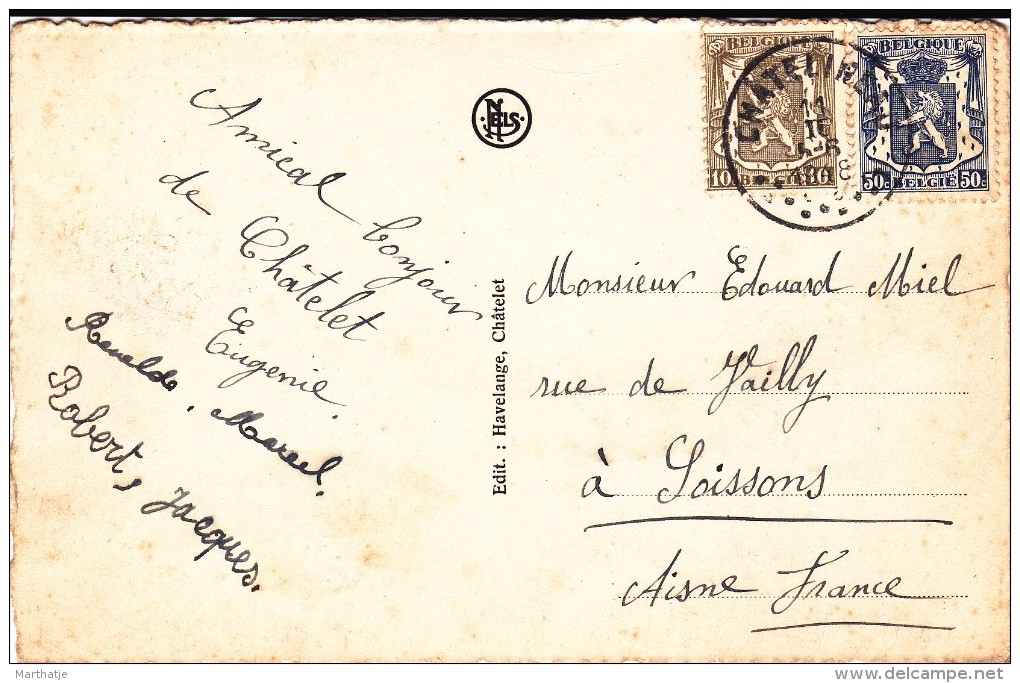 Amical bonjour
de Châtelet
Eugénie.
Marcel.
Robert, Jacques.
NELS
Edit. : Havelange, Châtelet
BELGIQUE
10
BELGIQUE
50c BELGIE 50c
Monsieur Edouard Miel
rue de Vailly
à Soissons
Aisne France
Marthatje
delcampe.net